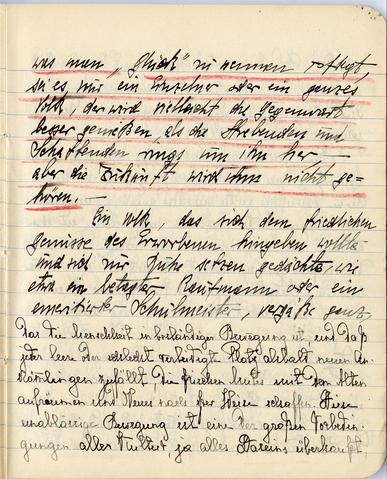 was man „Glück" zu nennen pflegt,
sei es nur ein Einzelner oder ein ganzes
Volk, der wird vielleicht die Gegenwart
besser genießen als die Strebenden und
Schaffenden rings um ihn her, —
aber die Zukunft wird ihm nicht ge-
hören. —
Ein Volk, das sich dem friedlichen
Genusse des Erworbenen hingeben wollte
und sich nur Ruhe setzen gedächte, wie
etwa ein betagter Kaufmann oder ein
emeritierter Schulmeister, vergäße ganz,
Das die Menschheit in beständiger Bewegung ist und daß
jeder leere oder schlecht verteidigte Platz alsbald neuen An-
kömmlingen zufällt. Die frischen mit dem Alten
aufräumen und Neues nach ihrer Weise schaffen. Diese
unablässige Bewegung ist eine der großen Vorbedin-
gungen aller Kultur ja alles Daseins überhaupt.